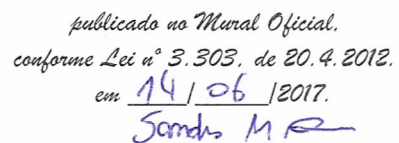 publicado no Mural Oficial,
conforme Lei nº 3.303, de 20.4.2012.
em 14 / 06 /2017.